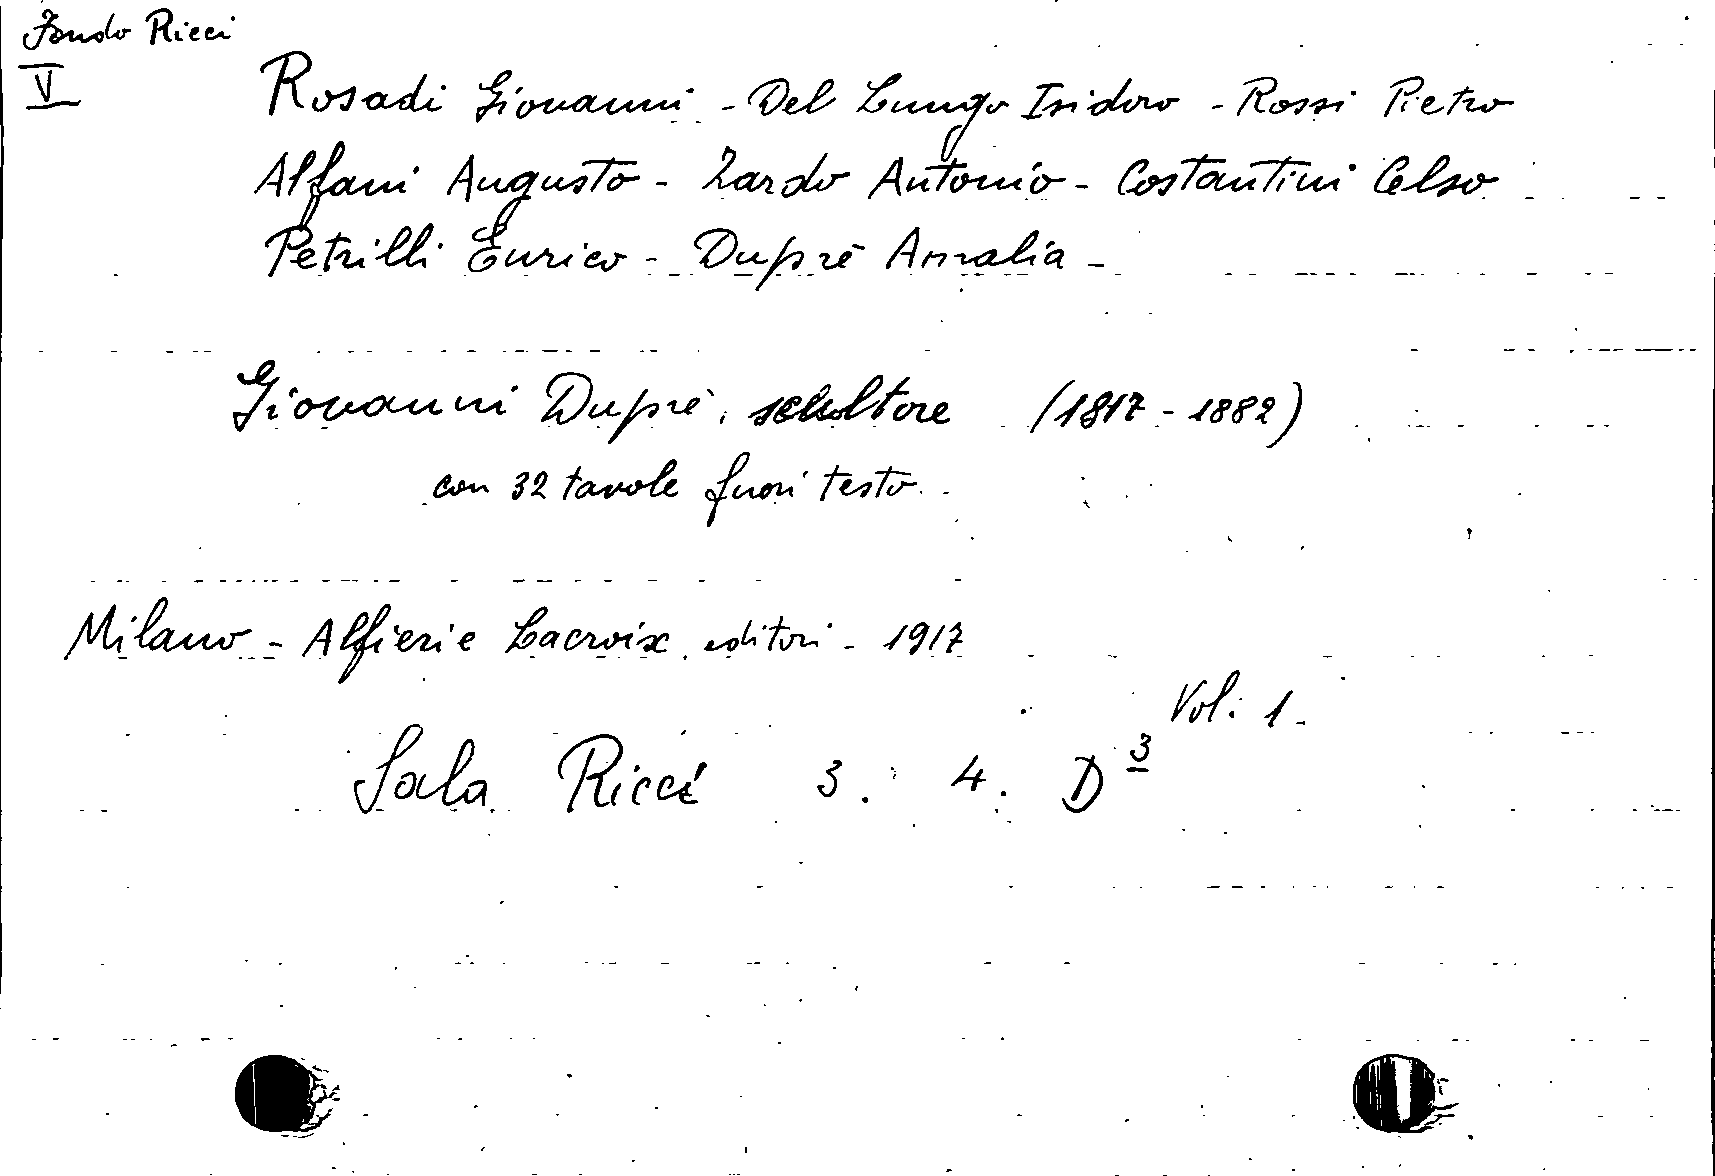 Fondo Ricci
V
Rosadi Giovanni - Del Lungo Isidoro - Rossi Pietro
Alfani Augusto - Zardo Antonio - Costantini Celso
Petrilli Enrico - Dupré Amalia -
Giovanni Dupré, scultore (1817 - 1882)
con 32 tavole fuori testo.
Milano - Alfieri e Lacroix editori - 1917
Vol. 1.
Sala Ricci 3. 4. D 3